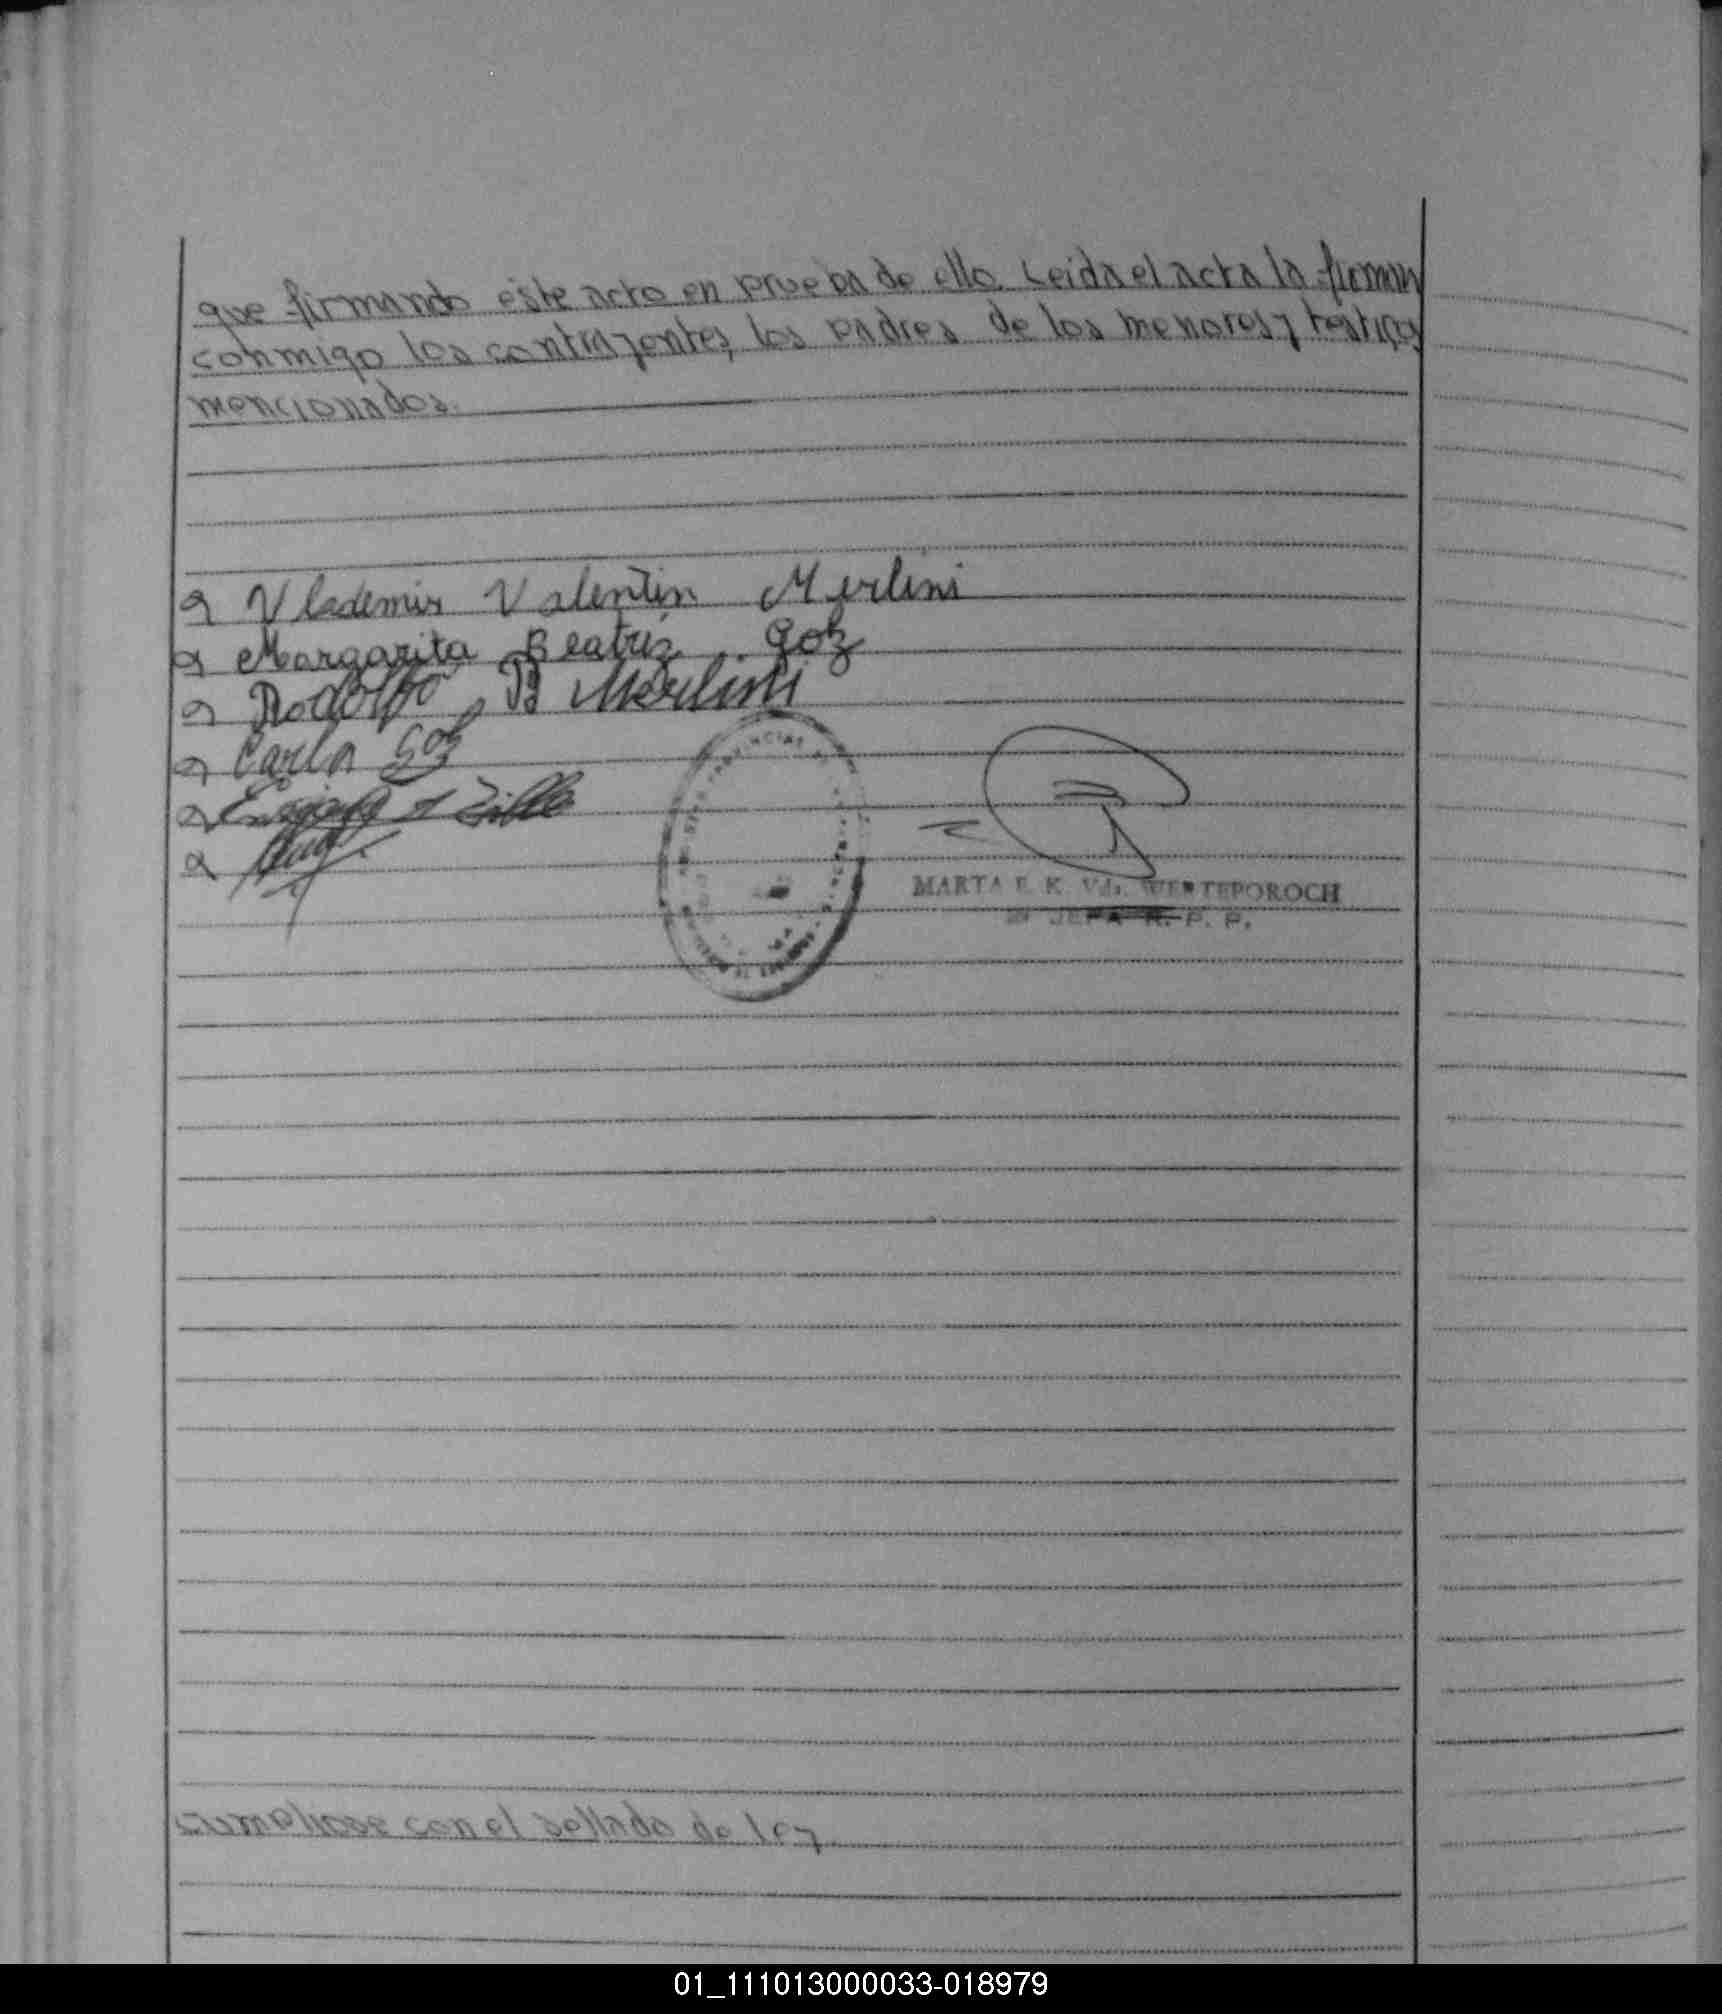 que firmando este acto en prueba de ello. Leida el acta la firman
conmigo los contrayentes, los padres de los menores y testigos
mencionados.
Vlademir Valentin Merlini
Margarita Beatriz Goz
Rodolfo B Merlini
Carla Goz
MARTA E. K. Vda. WERTEPOROCH
JEFA R. P. P.
cumpliose con el sellado de ley
01_111013000033-018979